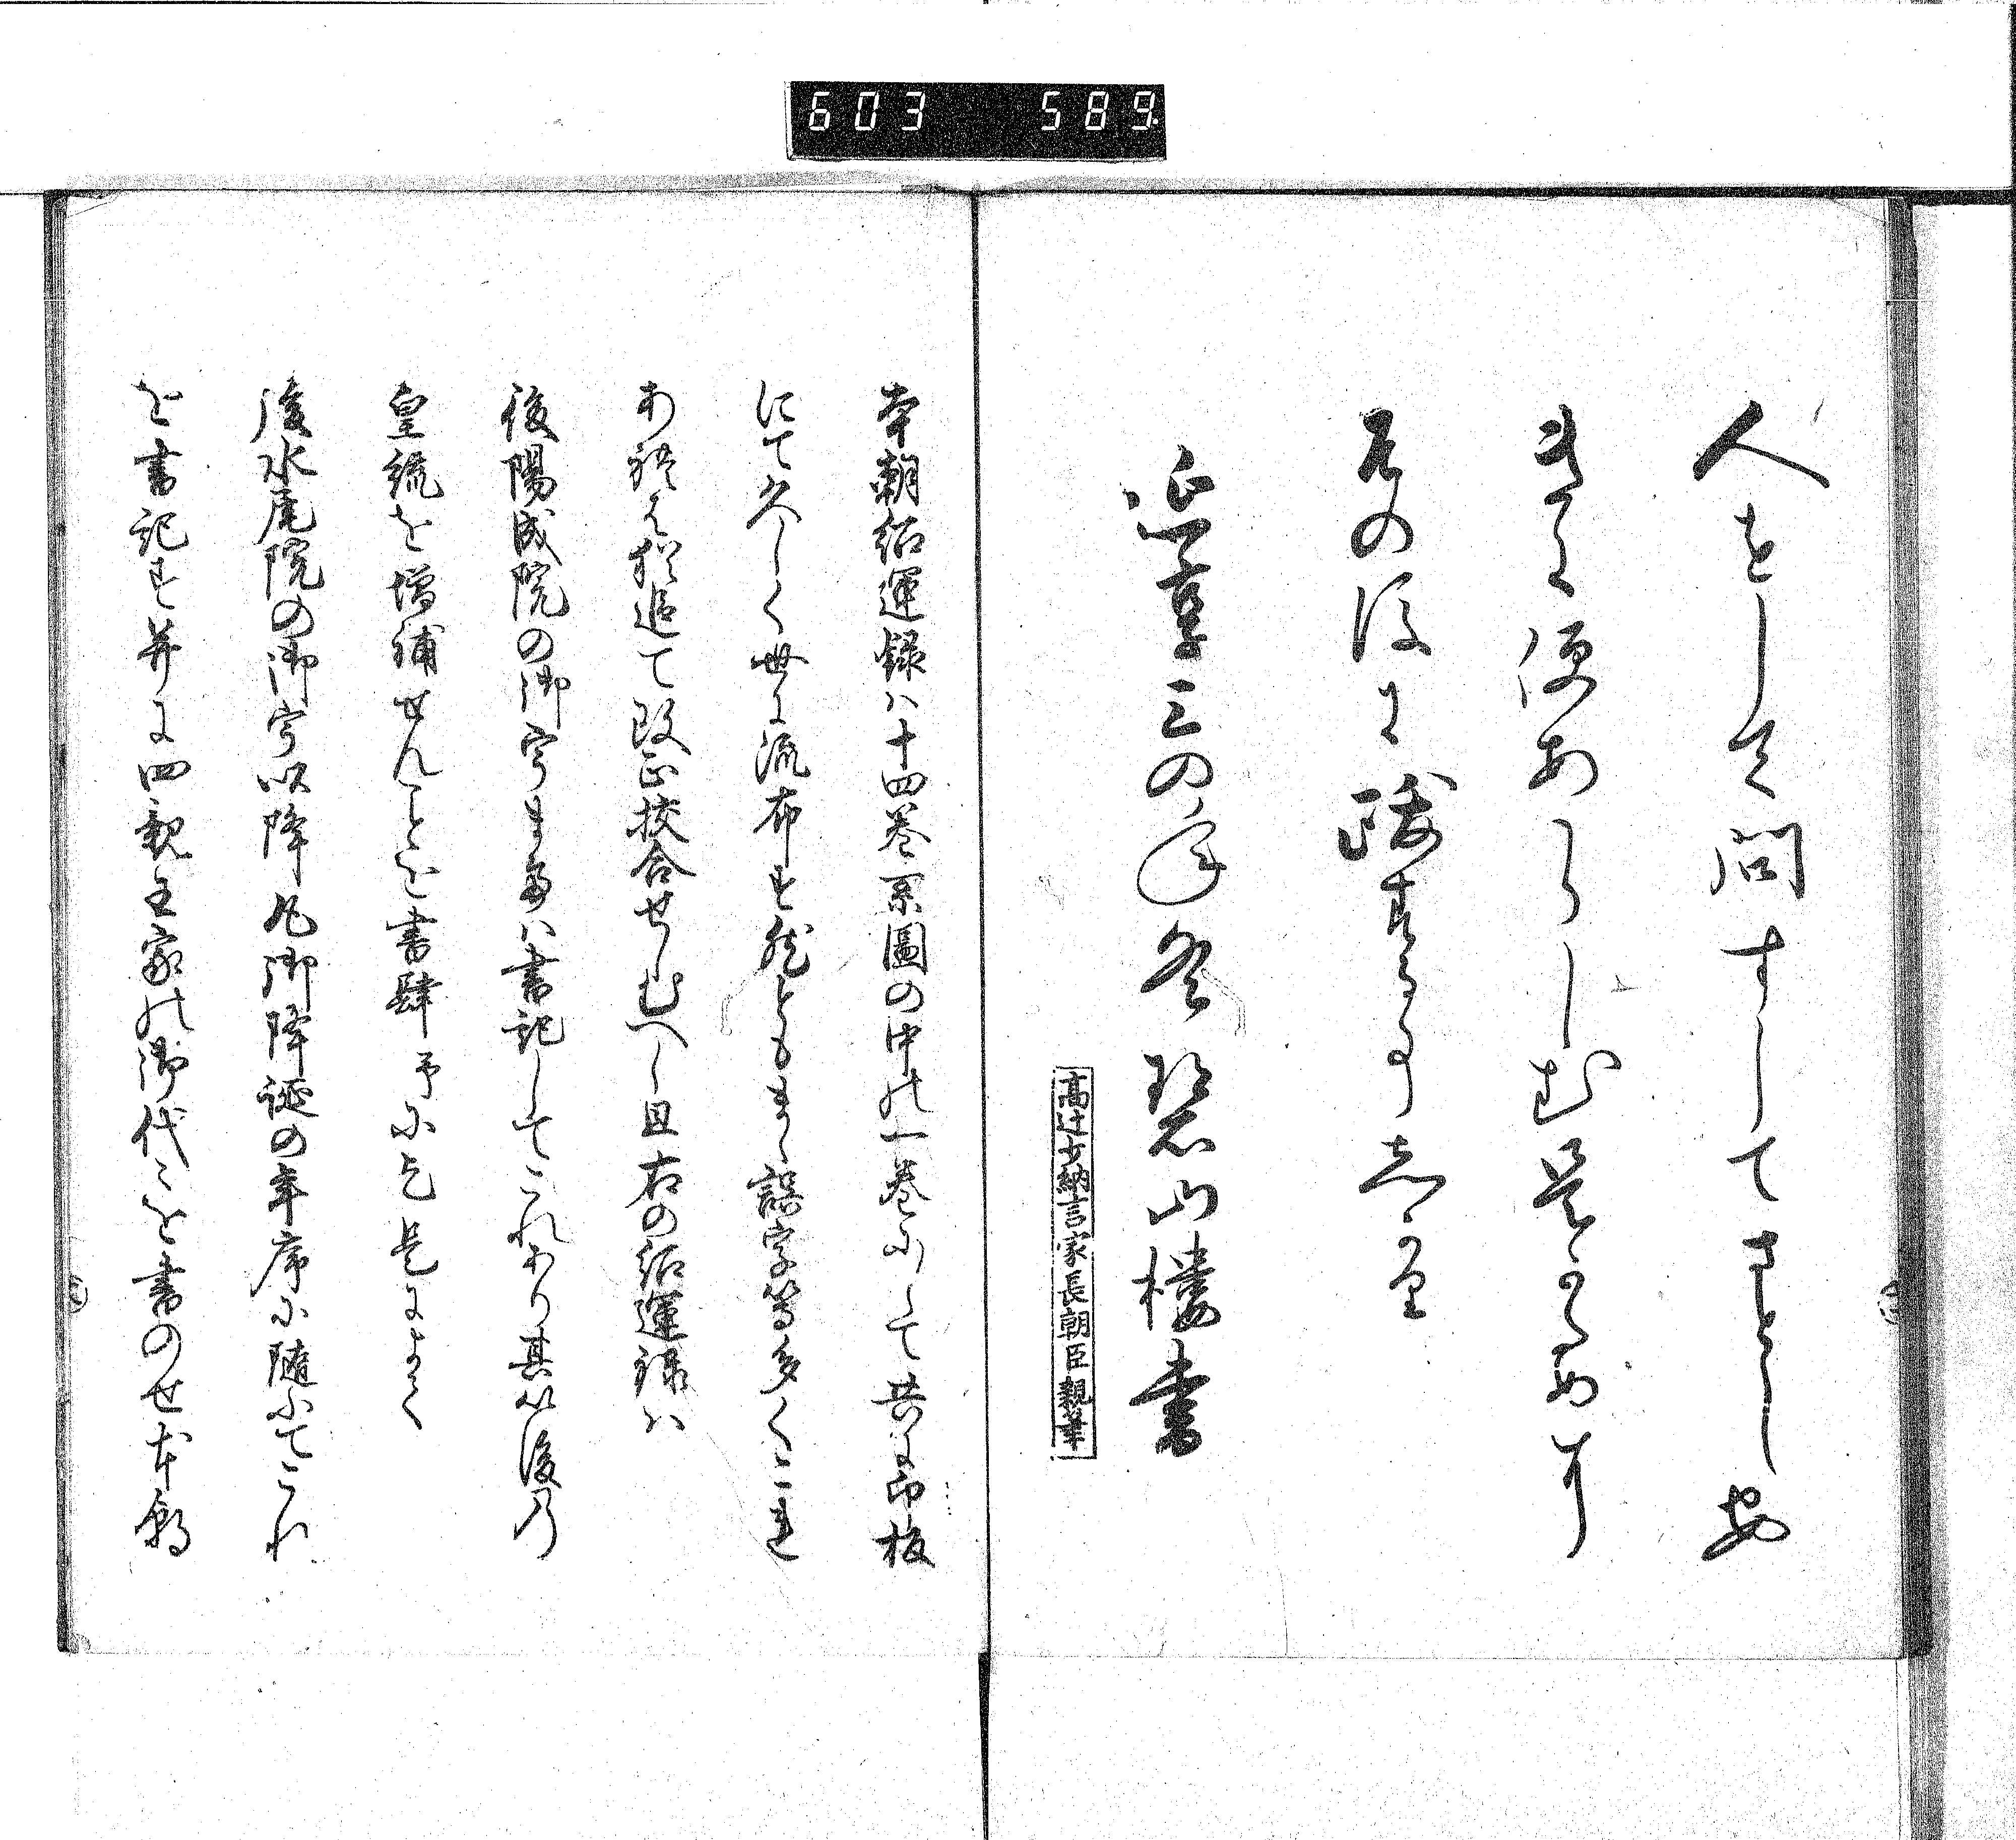 603 589
人をして問すしてさとし安
きに便あらしむ是かためす
其の後に跋する事しかり
延享三の年冬 碧山楼書
高辻少納言家長朝臣親筆
本朝紹運録ハ十四巻系圖の中の一巻にして共に印板
にて久しく世に流布す然ともまゝ誤字等多くこれ
あれは猶追て改正挍合せしむへし且右の紹運録ハ
後陽成院の御宇まてハ書記してこれあり其以後の
皇統を増補せんことを書肆予に乞是によつて
後水尾院の御宇以降凡御降誕の年序に随てこれ
を書記す并に四親王家の御代々を書のせ本朝